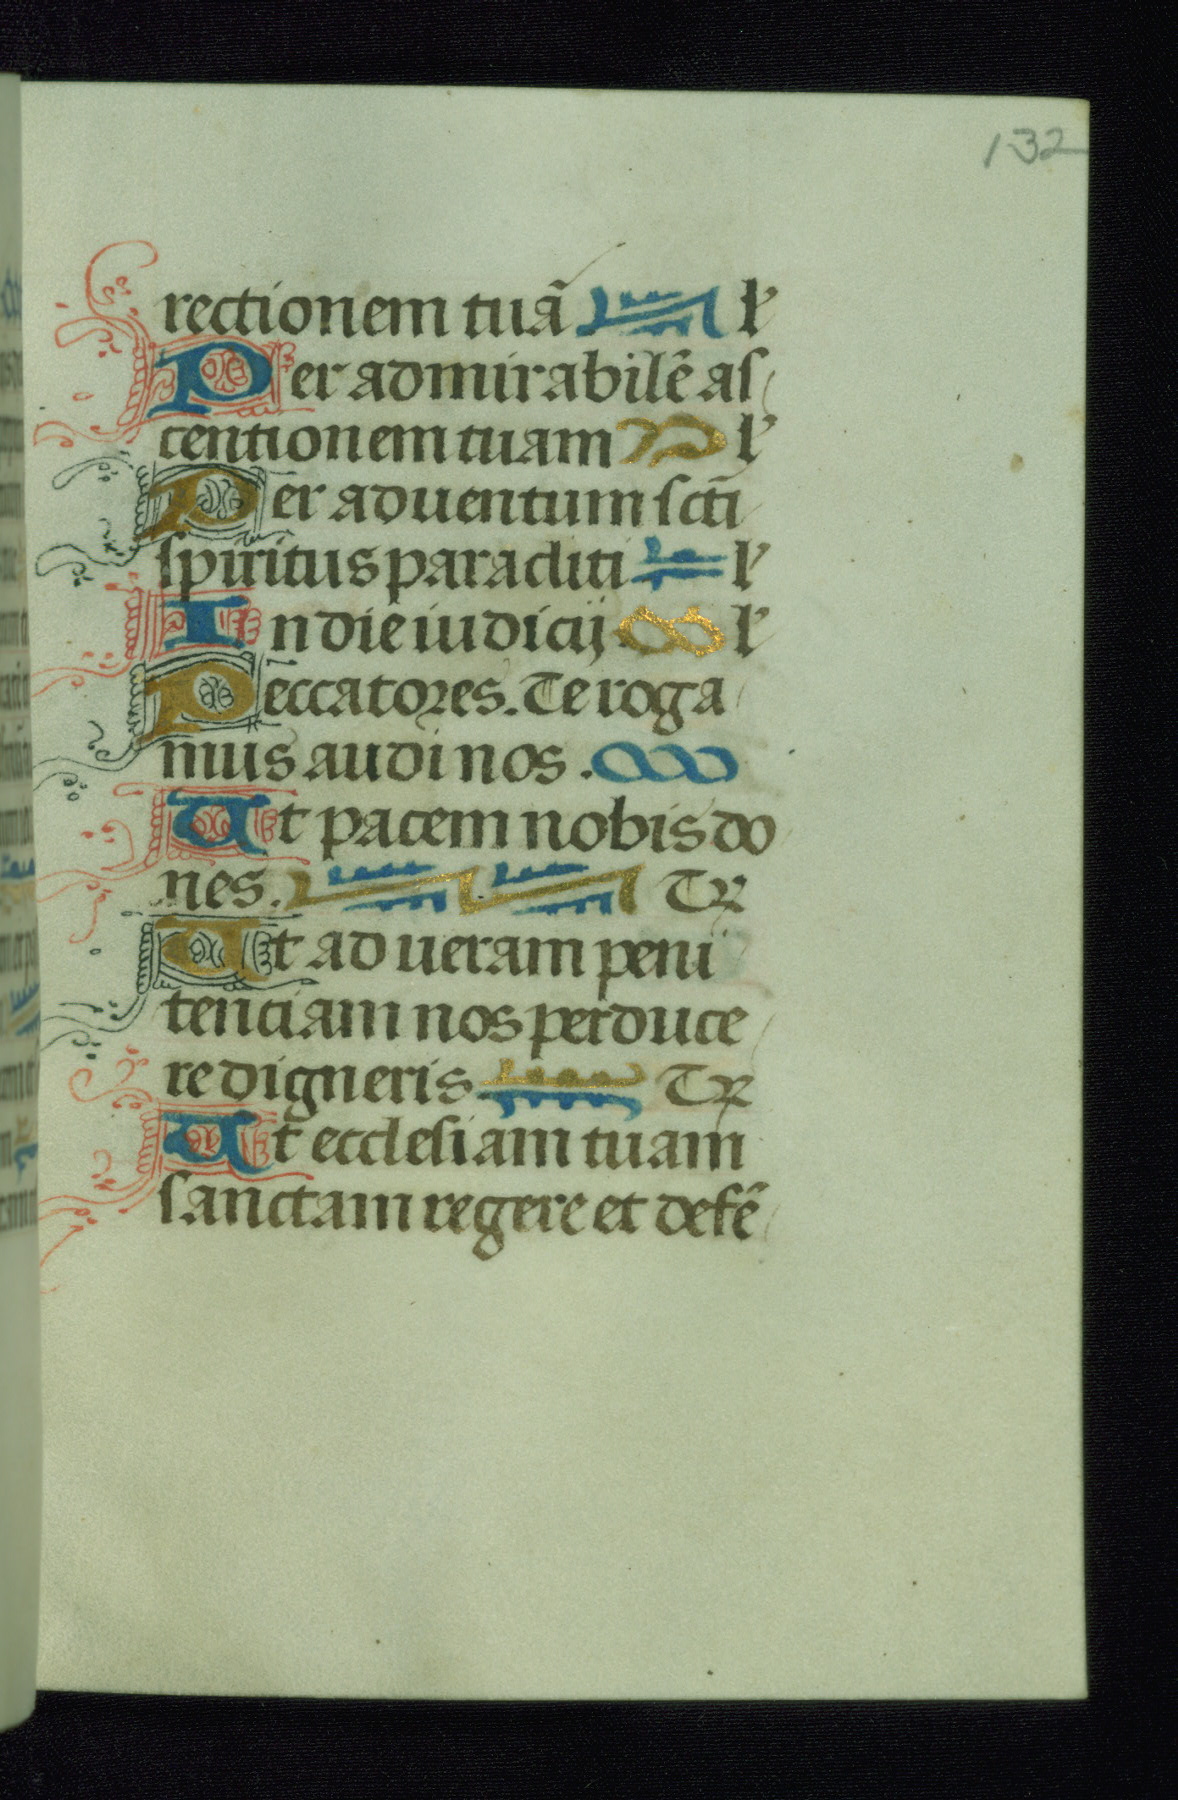 132
rectionem tuã l
Per admirabilẽ as
centionem tuam l
Per aduentum sc̃ti
spiritus paracliti l
In die iudicij l
Peccatores. Te roga
mus audi nos.
Ut pacem nobis do
nes. Tr
Ut ad ueram peni
tenciam nos perduce
re digneris Tr
Ut ecclesiam tuam
sanctam regere et defẽ